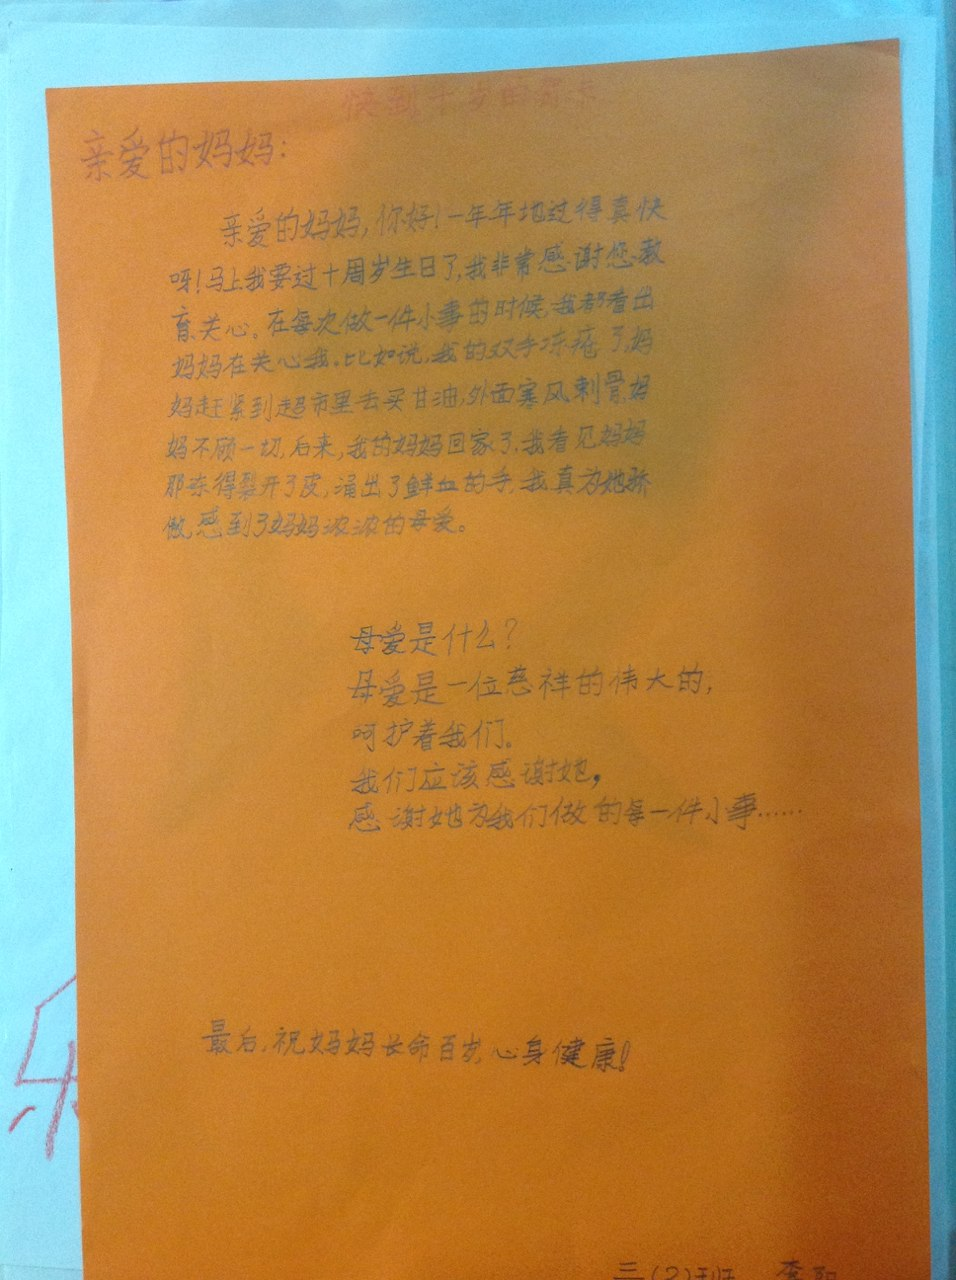 快到十岁的
亲爱的妈妈：
亲爱的妈妈，你好！一年年地过得真快
呀！马上我要过十周岁生日了，我非常感谢您教
育、关心。在每次做一件小事的时候，我都看出
妈妈在关心我。比如说，我的双手冻疮了，妈
妈赶紧到超市里去买甘油，外面寒风刺骨，妈
妈不顾一切，后来，我的妈妈回家了，我看见妈妈
那冻得裂开了皮，涌出了鲜血的手，我真为她骄
傲，感到了妈妈浓浓的母爱。
母爱是什么？
母爱是一位慈祥的伟大的，
呵护着我们。
我们应该感谢她，
感谢她为我们做的每一件小事……
最后，祝妈妈长命百岁，心身健康！
三（2）班
乐